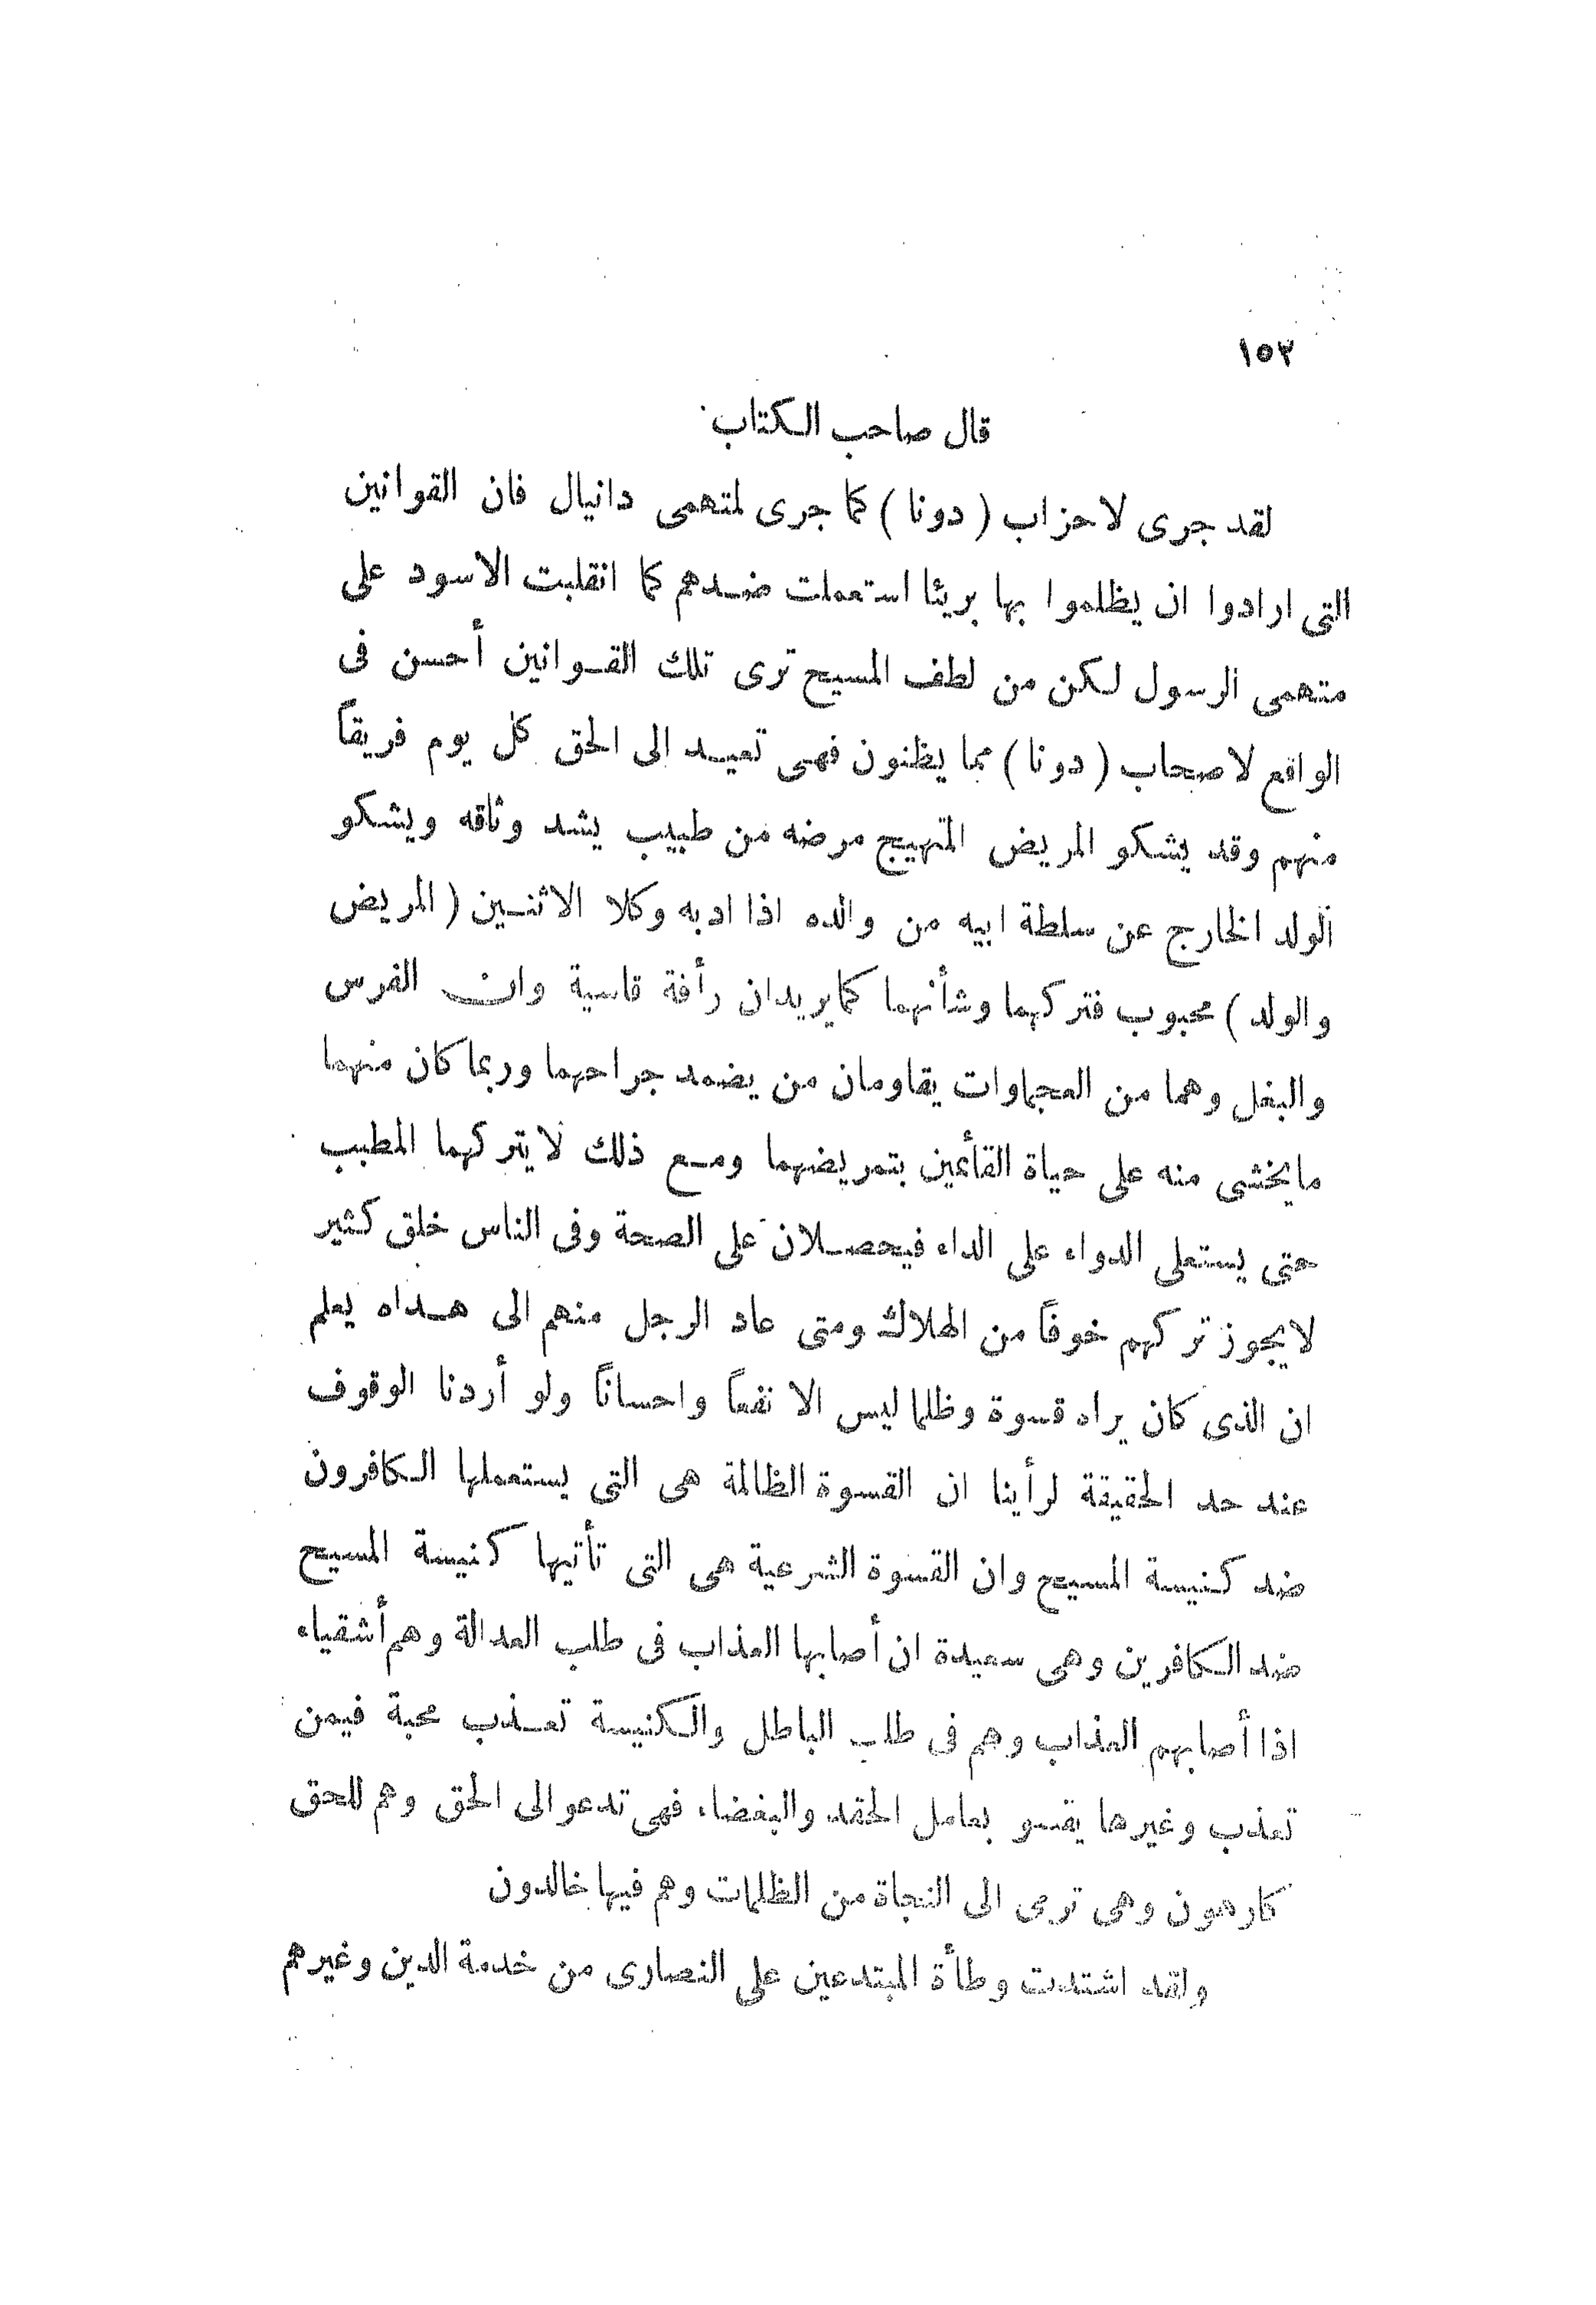 ١٥٢
قال صاحب الكتاب
لقد جرى لاحزاب ( دونا ) كما جرى لمتهمى دانيال فان القوانين
التى ارادوا ان يظلموا بها بريئا استعملت ضدهم كما انقلبت الاسود على
متهمى الرسول لكن من لطف المسيح ترى تلك القوانين أحسن فى
الواقع لاصحاب ( دونا ) مما يظنون فهى تعيد الى الحق كل يوم فريقاً
منهم وقد يشكو المريض المتهيج مرضه من طبيب يشد وثاقه ويشكو
الولد الخارج عن سلطة ابيه من والده اذا ادبه وكلا الاثنين ( المريض
والولد ) محبوب فتركهما وشأنهما كما يريدان رأفة قاسية وان الفرس
والبغل وهما من العجماوات يقاومان من يضمد جراحهما وربما كان منهما
ما يخشى منه على حياة القائمين بتمريضهما ومع ذلك لا يتركهما المطبب
حتى يستعلى الدواء على الداء فيحصلان على الصحة وفى الناس خلق كثير
لا يجوز تركهم خوفاً من الهلاك ومتى عاد الرجل منهم الى هداه يعلم
ان الذى كان يراه قسوة وظلما ليس الا نفعاً واحساناً ولو أردنا الوقوف
عند حد الحقيقة لرأينا ان القسوة الظالمة هى التى يستعملها الكافرون
ضد كنيسة المسيح وان القسوة الشرعية هى التى تأتيها كنيسة المسيح
ضد الكافرين وهى سعيدة ان أصابها العذاب فى طلب العدالة وهم أشقياء
اذا أصابهم العذاب وهم فى طلب الباطل والكنيسة تعذب محبة فيمن
تعذب وغيرها يقسو بعامل الحقد والبغضاء فهى تدعو الى الحق وهم للحق
كارهون وهى ترمى الى النجاة من الظلمات وهم فيها خالدون
ولقد اشتدت وطأة المبتدعين على النصارى من خدمة الدين وغيرهم